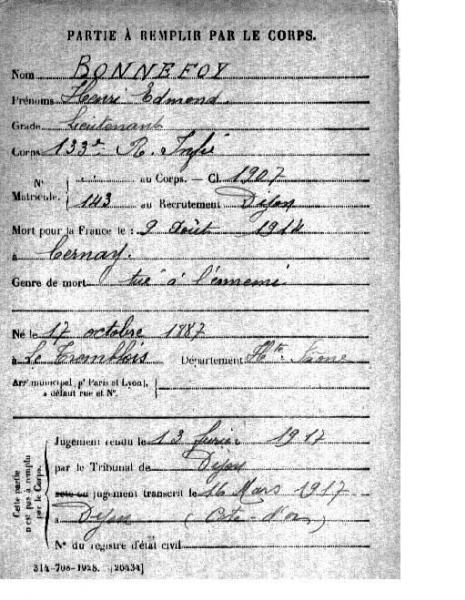 PARTIE À REMPLIR PAR LE CORPS.
Nom BONNEFOY
Prénoms Henri Edmond.
Grade Lieutenant
Corps 133e R. Infie
N° Matricule. au Corps. — Cl. 1907
143 au Recrutement Dijon
Mort pour la France le : 9 Août 1914
à Cernay.
Genre de mort tué à l'ennemi
Né le 17 octobre 1887
à Le Tremblois Département Hte Saône
Arr. municipal (p' Paris et Lyon),
à défaut rue et N°.
Cette partie n'est pas à remplir par le Corps.
Jugement rendu le 13 février 1917
par le Tribunal de Dijon
acte ou jugement transcrit le 16 Mars 1917
à Dijon (Côte-d'or)
N° du registre d'état civil
314-708-1928. [20434]